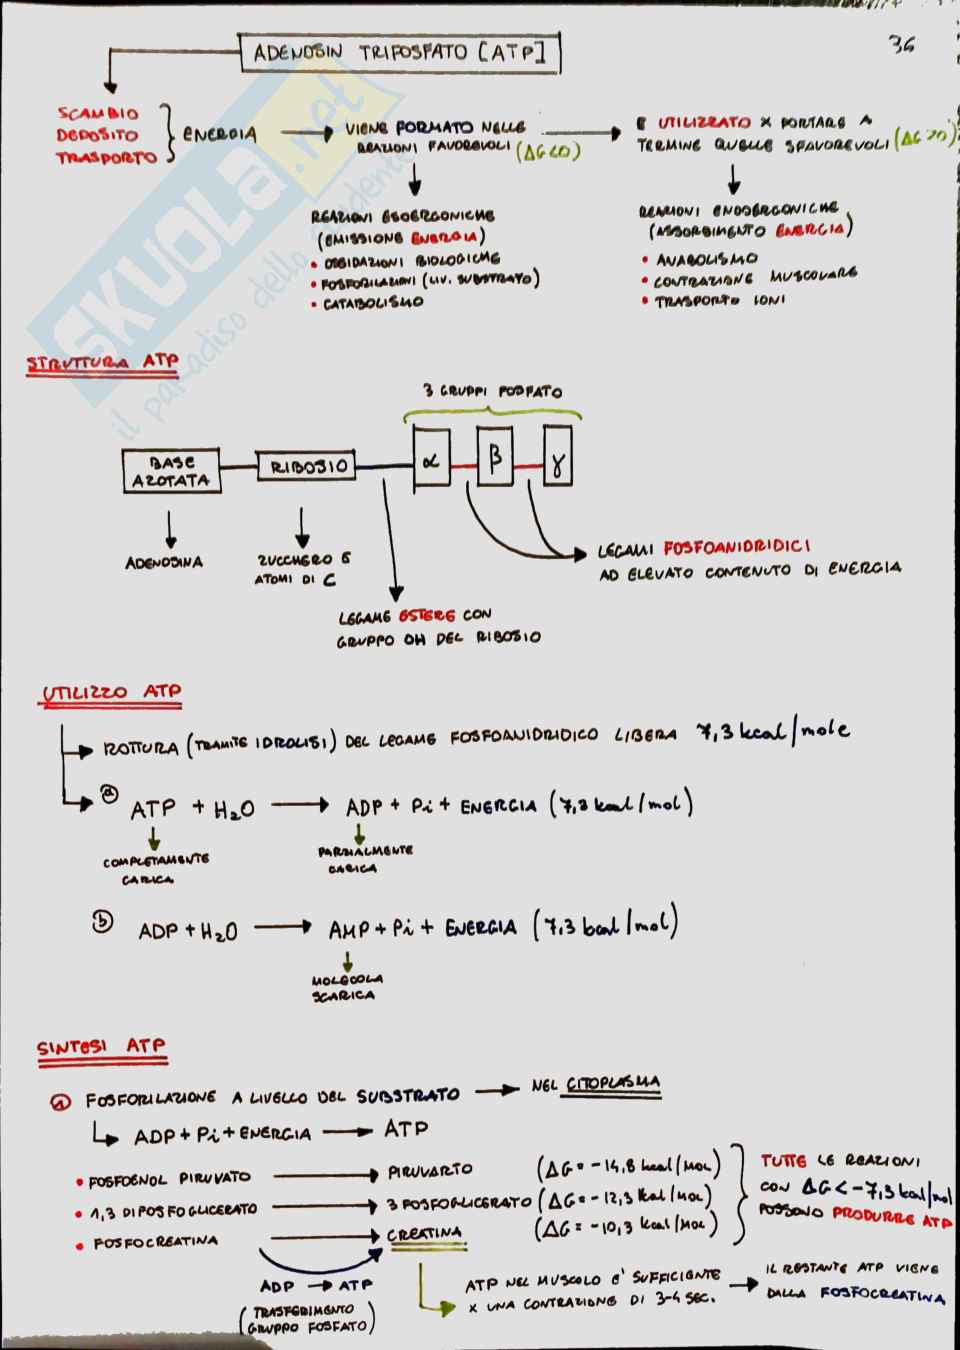 ADENOSIN TRIFOSFATO [ATP]
36
SCAMBIO
DEPOSITO
TRASPORTO
ENERGIA
VIENE FORMATO NELLE
REAZIONI FAVOREVOLI (ΔG<0)
E UTILIZZATO X PORTARE A
TERMINE QUELLE SFAVOREVOLI (ΔG>0)
REAZIONI ESOERGONICHE
(EMISSIONE ENERGIA)
• OSSIDAZIONI BIOLOGICHE
• FOSFORILAZIONI (LIV. SUBSTRATO)
• CATABOLISMO
REAZIONI ENDOERGONICHE
(ASSORBIMENTO ENERGIA)
• ANABOLISMO
• CONTRAZIONE MUSCOLARE
• TRASPORTO IONI
SKUOLA.net
il paradiso dello studente
STRUTTURA ATP
3 GRUPPI FOSFATO
BASE
AZOTATA
RIBOSIO
α
β
γ
ADENOSINA
ZUCCHERO 5
ATOMI DI C
LEGAMI FOSFOANIDRIDICI
AD ELEVATO CONTENUTO DI ENERGIA
LEGAME ESTERE CON
GRUPPO OH DEL RIBOSIO
UTILIZZO ATP
ROTTURA (TRAMITE IDROLISI) DEL LEGAME FOSFOANIDRIDICO LIBERA 7,3 kcal/mole
a ATP + H₂O → ADP + Pi + ENERGIA (7,3 kcal/mol)
COMPLETAMENTE
CARICA
PARZIALMENTE
CARICA
b ADP + H₂O → AMP + Pi + ENERGIA (7,3 kcal/mol)
MOLECOLA
SCARICA
SINTESI ATP
1 FOSFORILAZIONE A LIVELLO DEL SUBSTRATO → NEL CITOPLASMA
ADP + Pi + ENERGIA → ATP
• FOSFOENOL PIRUVATO → PIRUVATO (ΔG = -14,8 kcal/MOL)
• 1,3 DIFOSFOGLICERATO → 3 FOSFOGLICERATO (ΔG = -12,3 kcal/MOL)
• FOSFOCREATINA → CREATINA (ΔG = -10,3 kcal/MOL)
TUTTE LE REAZIONI
CON ΔG < -7,3 kcal/mol
POSSONO PRODURRE ATP
ADP → ATP
(TRASFERIMENTO
GRUPPO FOSFATO)
ATP NEL MUSCOLO E' SUFFICIENTE
X UNA CONTRAZIONE DI 3-4 SEC.
IL RESTANTE ATP VIENE
DALLA FOSFOCREATINA